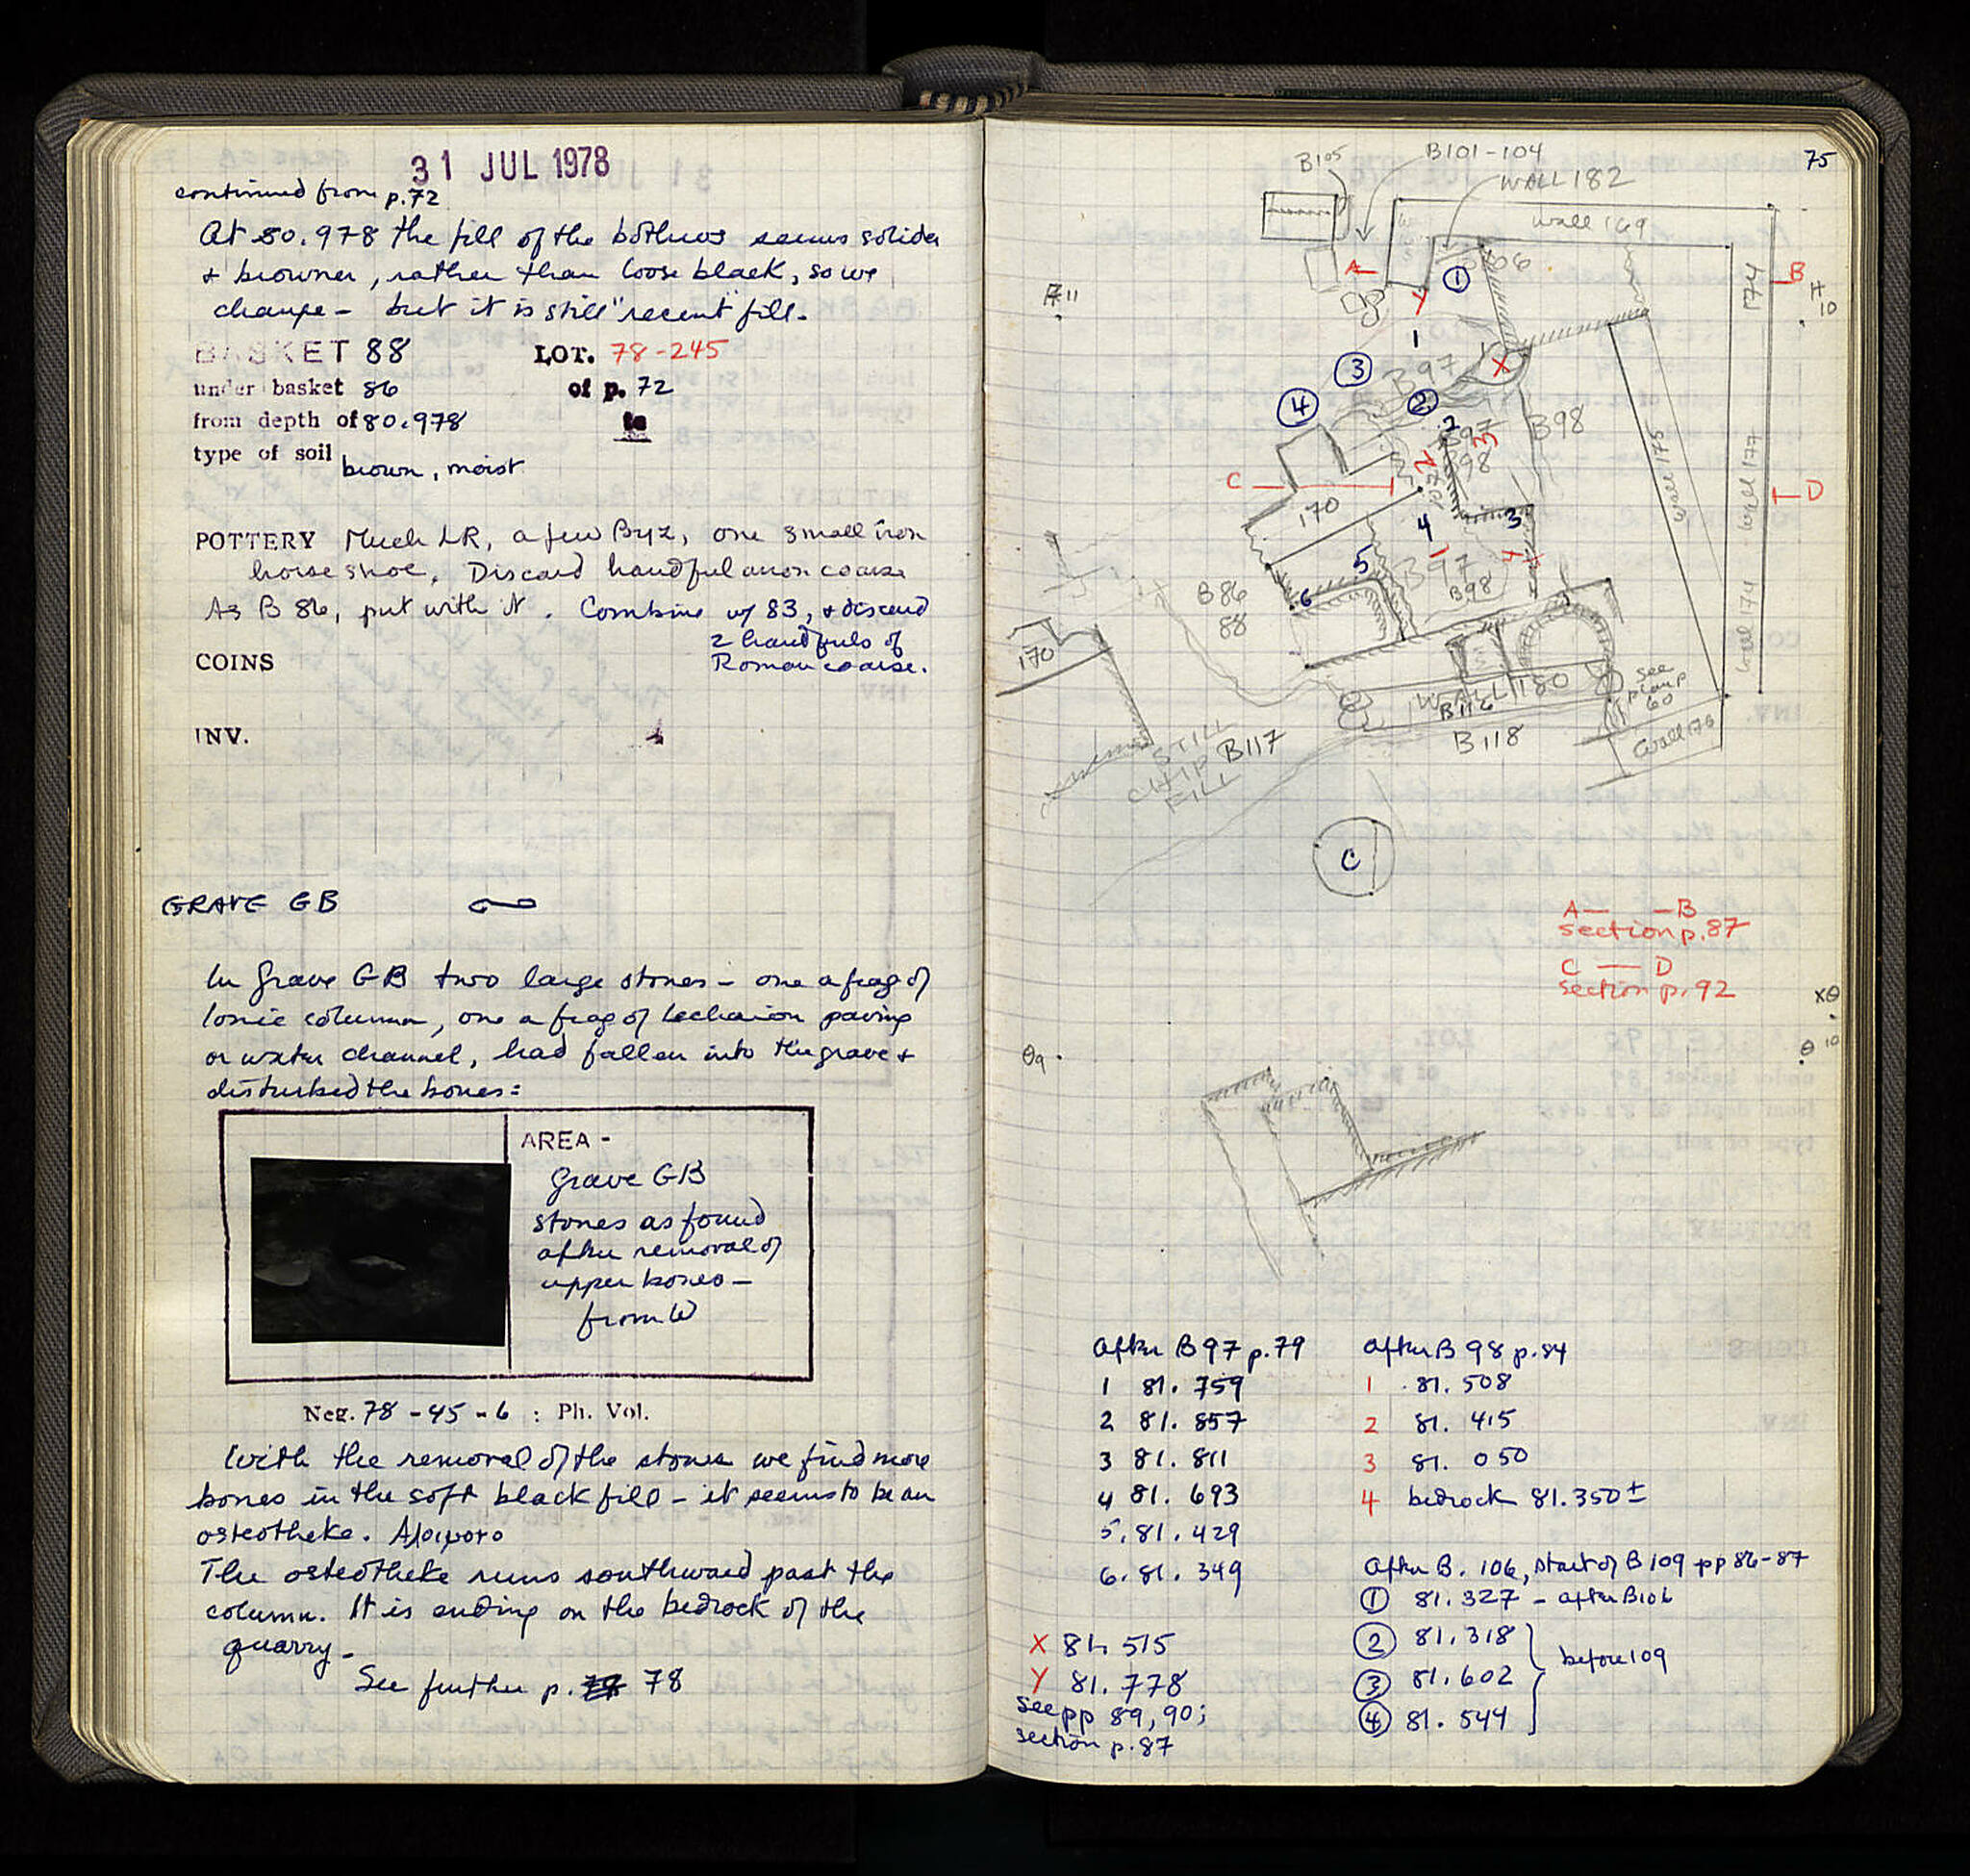 31 JUL 1978
continued from p.72
At 80.978 the fill of the bothros seems solider
& browner, rather than loose black, so we
change - but it is still "recent" fill.
BASKET 88 LOT. 78-245
under basket 86 of p. 72
from depth of 80.978 to
type of soil brown, moist
POTTERY Much LR, a few Byz, one small iron
horse shoe. Discard handful anon coarse
As B 86, put with it. Combine w/ 83, & discard
2 handfuls of
Roman coarse.
COINS
INV.
GRAVE GB
In Grave GB two large stones - one a frag of
Ionic column, one a frag of Lechaion paving
or water channel, had fallen into the grave &
disturbed the bones:
AREA -
Grave GB
stones as found
after removal of
upper bones -
from W
Neg. 78-45-6 : Ph. Vol.
With the removal of the stones we find more
bones in the soft black fill - it seems to be an
osteotheke.
The osteotheke runs southward past the
column. It is ending on the bedrock of the
quarry -
See further p. 78
75
B105
B101-104
WALL 182
wall 169
174
A
B
B106
1
Y
H 10
11
1
3
B97
X
4
2
2
B97
3
B98
B98
2
C
D
170
4
3
5
1
4
B97
B98
wall 175
wall 177
wall 174
B86
88
6
170
WALL 180
B116
see
plan p
60
B118
Wall 178
STILL
CHIP
FILL
B117
C
A— —B
section p. 87
C — D
section p. 92
XΘ
Θ9
Θ 10
After B 97 p. 79
1 81.759
2 81.857
3 81.811
4 81.693
5. 81.429
6. 81.349
X 81.515
Y 81.778
see pp 89, 90;
section p. 87
After B 98 p. 84
1 81.508
2 81.415
3 81.050
4 bedrock 81.350 ±
After B. 106, start of B 109 pp 86-87
1 81.327 - after B106
2 81.318
3 81.602 before 109
4 81.544